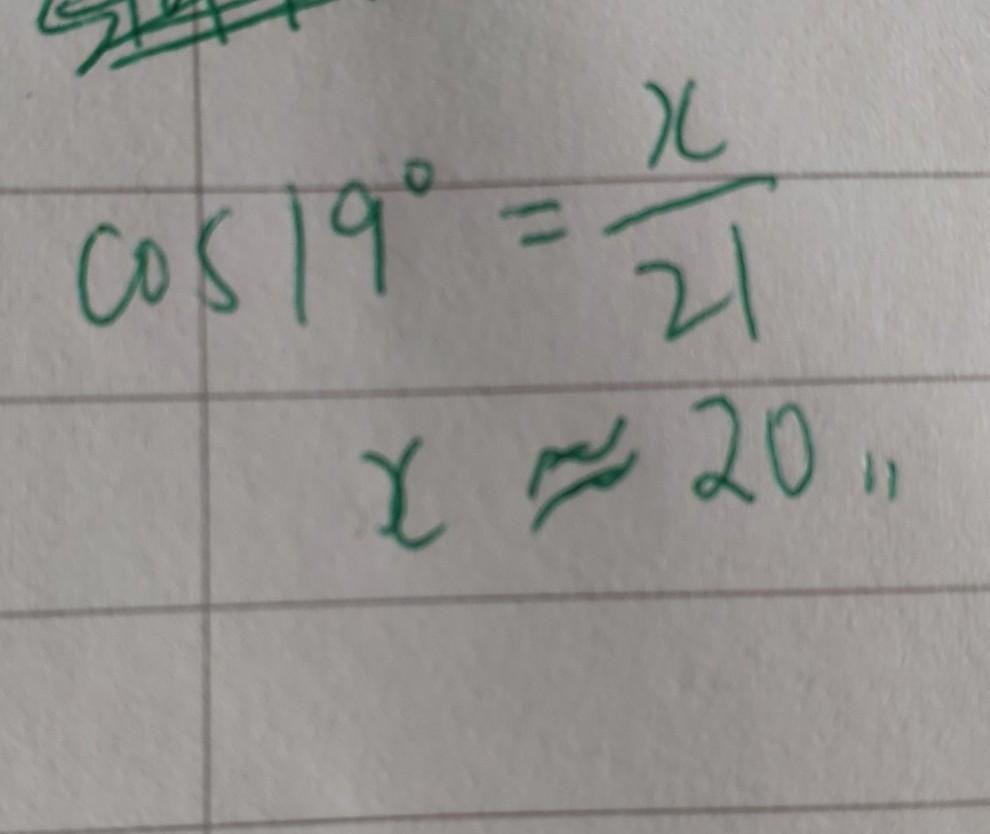 cos 19° = x/21
x ≈ 20 ,,